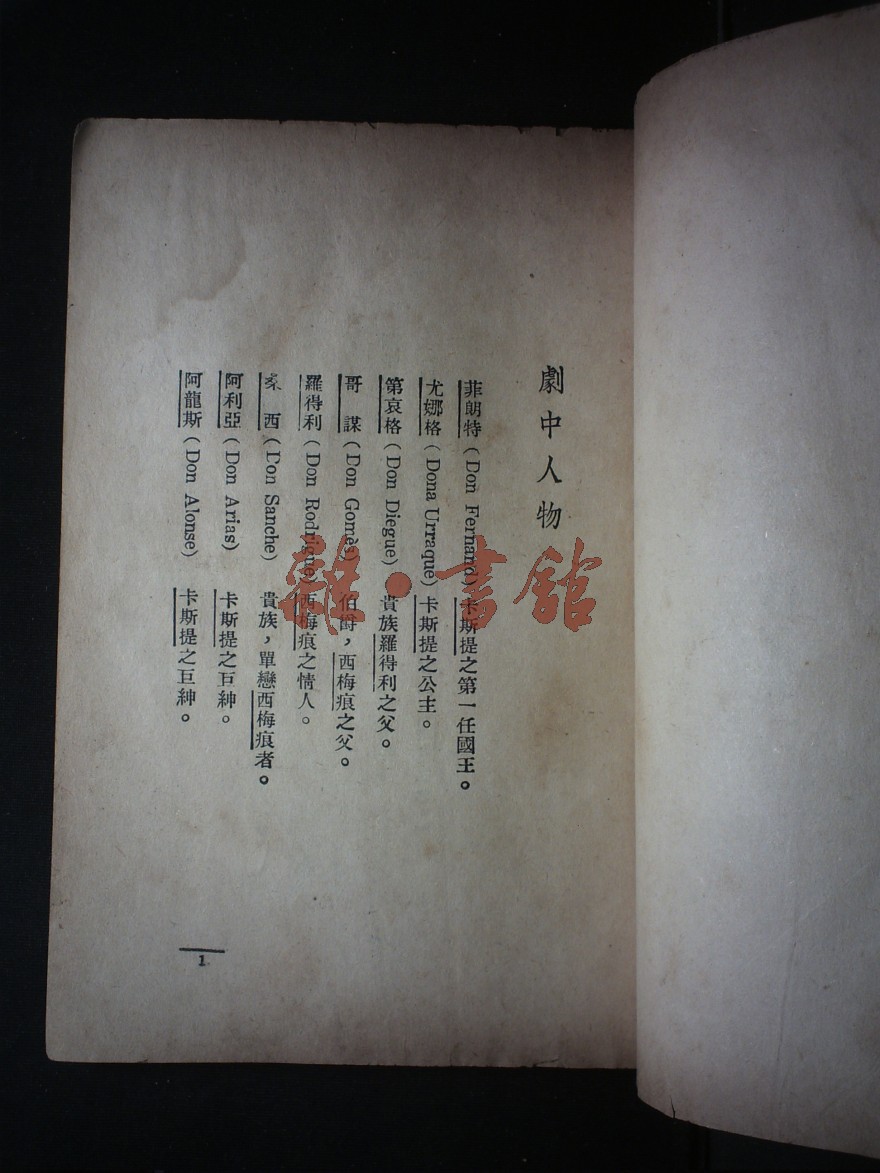 劇中人物
菲朗特（Don Fernand）卡斯提之第一任國王。
尤娜格（Dona Urraque）卡斯提之公主。
第哀格（Don Diegue）貴族羅得利之父。
哥謀（Don Gomès）伯爵，西梅痕之父。
羅得利（Don Rodrigue）西梅痕之情人。
西（Don Sanche）貴族，單戀西梅痕者。
阿利亞（Don Arias）卡斯提之巨紳。
阿龍斯（Don Alonse）卡斯提之巨紳。
1
雜·書館